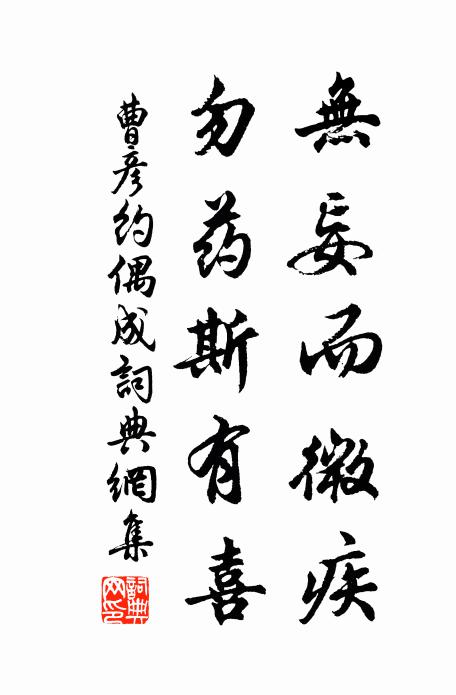 無妄而微疾
勿药斯有喜
曹彦約偶成詞典網集
詞典
网印